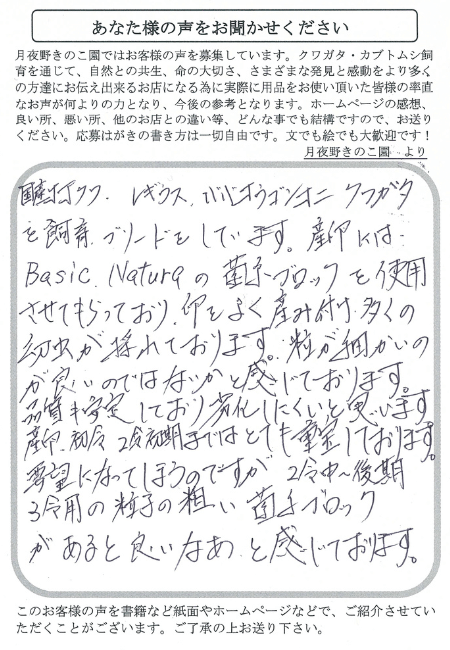 あなた様の声をお聞かせください
月夜野きのこ園ではお客様の声を募集しています。クワガタ・カブトムシ飼
育を通じて、自然との共生、命の大切さ、さまざまな発見と感動をより多く
の方達にお伝え出来るお店になる為に実際に用品をお使い頂いた皆様の率直
なお声が何よりの力となり、今後の参考となります。ホームページの感想、
良い所、悪い所、他のお店との違い等、どんな事でも結構ですので、お送り
ください。応募はがきの書き方は一切自由です。文でも絵でも大歓迎です！
月夜野きのこ園　より
国産オオクワ、レギウス、ババオウゴンオニ クワガタ
を飼育、ブリードをしています。産卵には
Basic, Naturaの菌糸ブロックを使用
させてもらっており、卵をよく産み付け、多くの
幼虫が採れております。粒が細かいの
が良いのではないかと感じております。
品質も安定しており劣化しにくいと思います
産卵、初令、2令初期まではとても重宝しております。
要望になってしまうのですが 2令中〜後期
3令用の粒子の粗い菌糸ブロック
があると良いなあと感じております。
このお客様の声を書籍など紙面やホームページなどで、ご紹介させてい
ただくことがございます。ご了承の上お送り下さい。